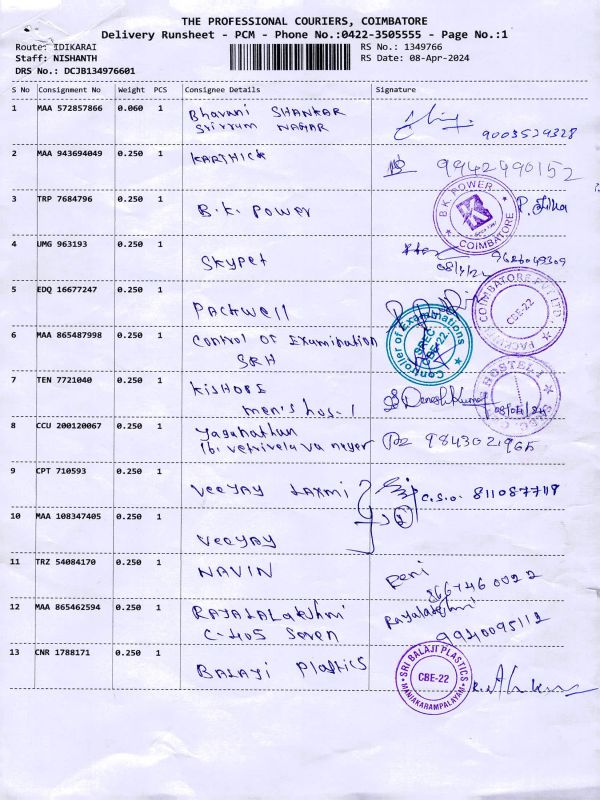 THE PROFESSIONAL COURIERS, COIMBATORE
Delivery Runsheet - PCM - Phone No.:0422-3505555 - Page No.:1
Route: IDIKARAI
RS No.: 1349766
Staff: NISHANTH
RS Date: 08-Apr-2024
DRS No.: DCJB134976601
S No Consignment No Weight PCS Consignee Details Signature
1 MAA 572857866 0.060 1 Bhavani SHANKAR
Srivrum NAGAR 9003529328
2 MAA 943694049 0.250 1 KARTHICK 9942490152
3 TRP 7684796 0.250 1 B.K. POWER
B.K. POWER
COIMBATORE
4 UMG 963193 0.250 1 SKYPET
5 EDQ 16677247 0.250 1 PACKWELL
CBE-22
6 MAA 865487998 0.250 1 Control of Examination
SRH
Controller of Examinations
SREC
CBE-22
7 TEN 7721040 0.250 1 KISHORE
men's hos. 1
HOSTEL
08/04/24
8 CCU 200120067 0.250 1 9843021965
9 CPT 710593 0.250 1 VEEJAY LAXMI C.S.O.
10 MAA 108347405 0.250 1 VEEJAY
11 TRZ 54084170 0.250 1 NAVIN
12 MAA 865462594 0.250 1 RAJALALakshmi
C-405 Seven 9940095112
13 CNR 1788171 0.250 1 BALAJI Plastics
SRI BALAJI PLASTICS
CBE-22
MANIAKARAMPALAYAM